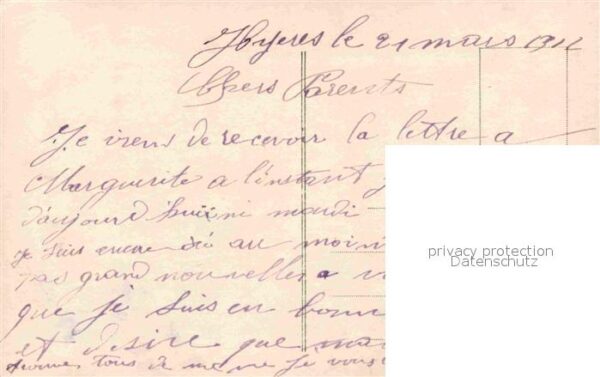 Hyeres le 21 mars 1912
Chers Parents
Je viens de recevoir la lettre a
Marguerite a l'instant
d'aujourd hui ni mardi
je suis encore au moin
pas grand nouvelles a
que je suis en bonn
et desire que
tous de meme je vous
privacy protection
Datenschutz